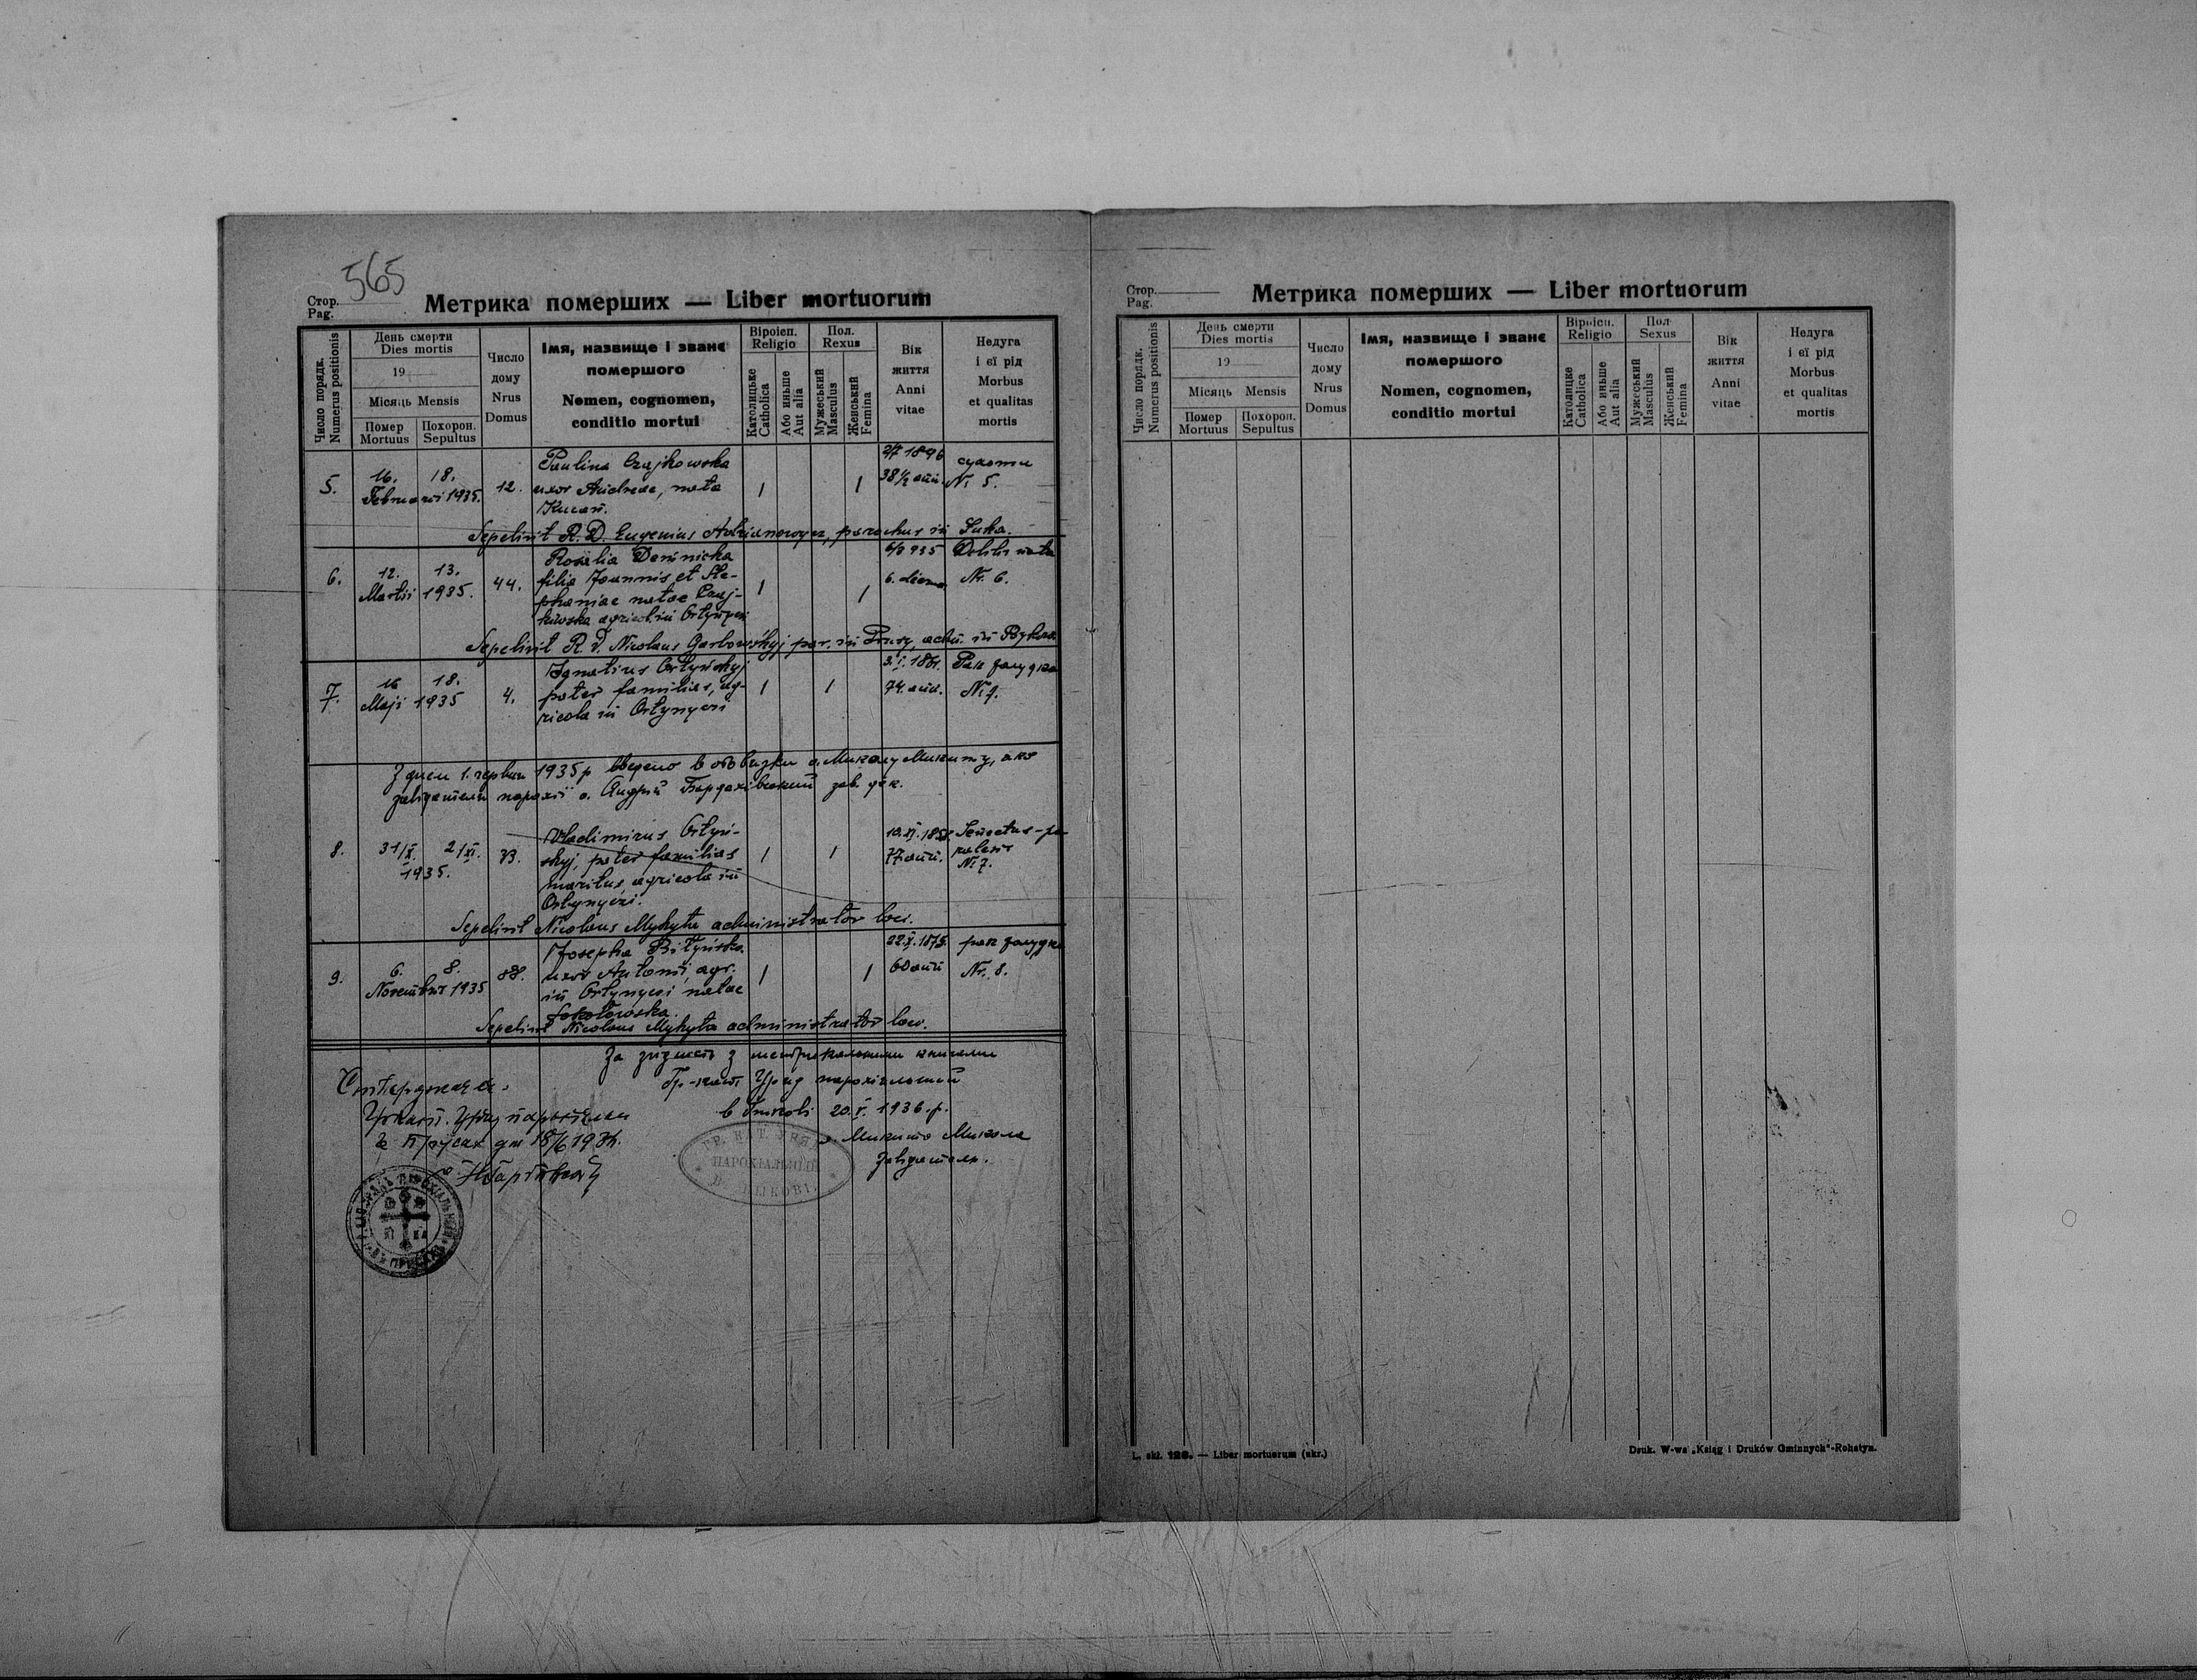 565
Стор.
Pag.
Метрика померших — Liber mortuorum
Число порядк.
Numerus positionis
День смерти
Dies mortis
19
Місяць Mensis
Помер
Mortuus
Похорон.
Sepultus
Число
дому
Nrus
Domus
Імя, назвище і званє
помершого
Nomen, cognomen,
conditio mortui
Віроісп.
Religio
Католицьке
Catholica
Або иньше
Aut alia
Пол.
Rexus
Мужеський
Masculus
Женський
Femina
Вік
життя
Anni
vitae
Недуга
і єї рід
Morbus
et qualitas
mortis
5.
16. 18.
Februarii 1935.
12.
Paulina Czajkowska
uxor Andreae, nata
1
1
2/7 1896
38 1/2 ann.
сухоти
Nr 5.
Sepelivit R. D. Eugenius parochus in Luka.
6.
12. 13.
Martii 1935.
44.
Rosalia
filia Joannis et Ste-
phaniae natae Czaj-
kiwska agricol. in Ortynyczi
1
1
6/3 935
6. dierum
Debilis nata
Nr. 6.
Sepelivit R. D. Nicolaus Garbowskyj par. in Prusy, adm. in
7.
16 18.
Maji 1935
4.
Ignatius Ortyńskyj
pater familias, ag-
ricola in Ortynyczi
1
1
3.I.1861.
74. ann.
Рак
З днем 1. червня 1935 р введено в обовязки о. Миколу Микиту, яко
завідателя парохії о. Андрій Бардахівський зав. дек.
8.
31/X. 2/XI.
1935.
33.
Vladimirus Ortyń-
skyj, pater familias
maritus, agricola in
Ortynyczi.
1
1
77 ann.
Senectus - pa
ralesis
Nr 7.
Sepelivit Nicolaus Mykyta administrator loci.
9.
6. 8.
Novembris 1935
88.
Josepha Bilyńska
uxor Antonii, agr.
in Ortynyczi natae
Sokołowska.
1
1
60 ann
рак
Nr. 8.
Sepelivit Nicolaus Mykyta administrator loci.
За згідність з метрикальними книгами
Гр.-кат. Уряд парохіяльний
20.V. 1936. р.
о. Микита Микола
завідатель.
Ствержає:
ГР. КАТ. УРЯД
ПАРОХІАЛЬНИЙ
Стор.
Pag.
Метрика померших — Liber mortuorum
Число порядк.
Numerus positionis
День смерти
Dies mortis
19
Місяць Mensis
Помер
Mortuus
Похорон.
Sepultus
Число
дому
Nrus
Domus
Імя, назвище і званє
помершого
Nomen, cognomen,
conditio mortui
Віроісп.
Religio
Католицке
Catholica
Або иньше
Aut alia
Пол
Sexus
Мужеський
Masculus
Женський
Femina
Вік
життя
Anni
vitae
Недуга
і єї рід
Morbus
et qualitas
mortis
L. skł. 128. — Liber mortuorum (ukr.)
Druk. W-wa „Ksiąg i Druków Gminnych"-Rohatyn.